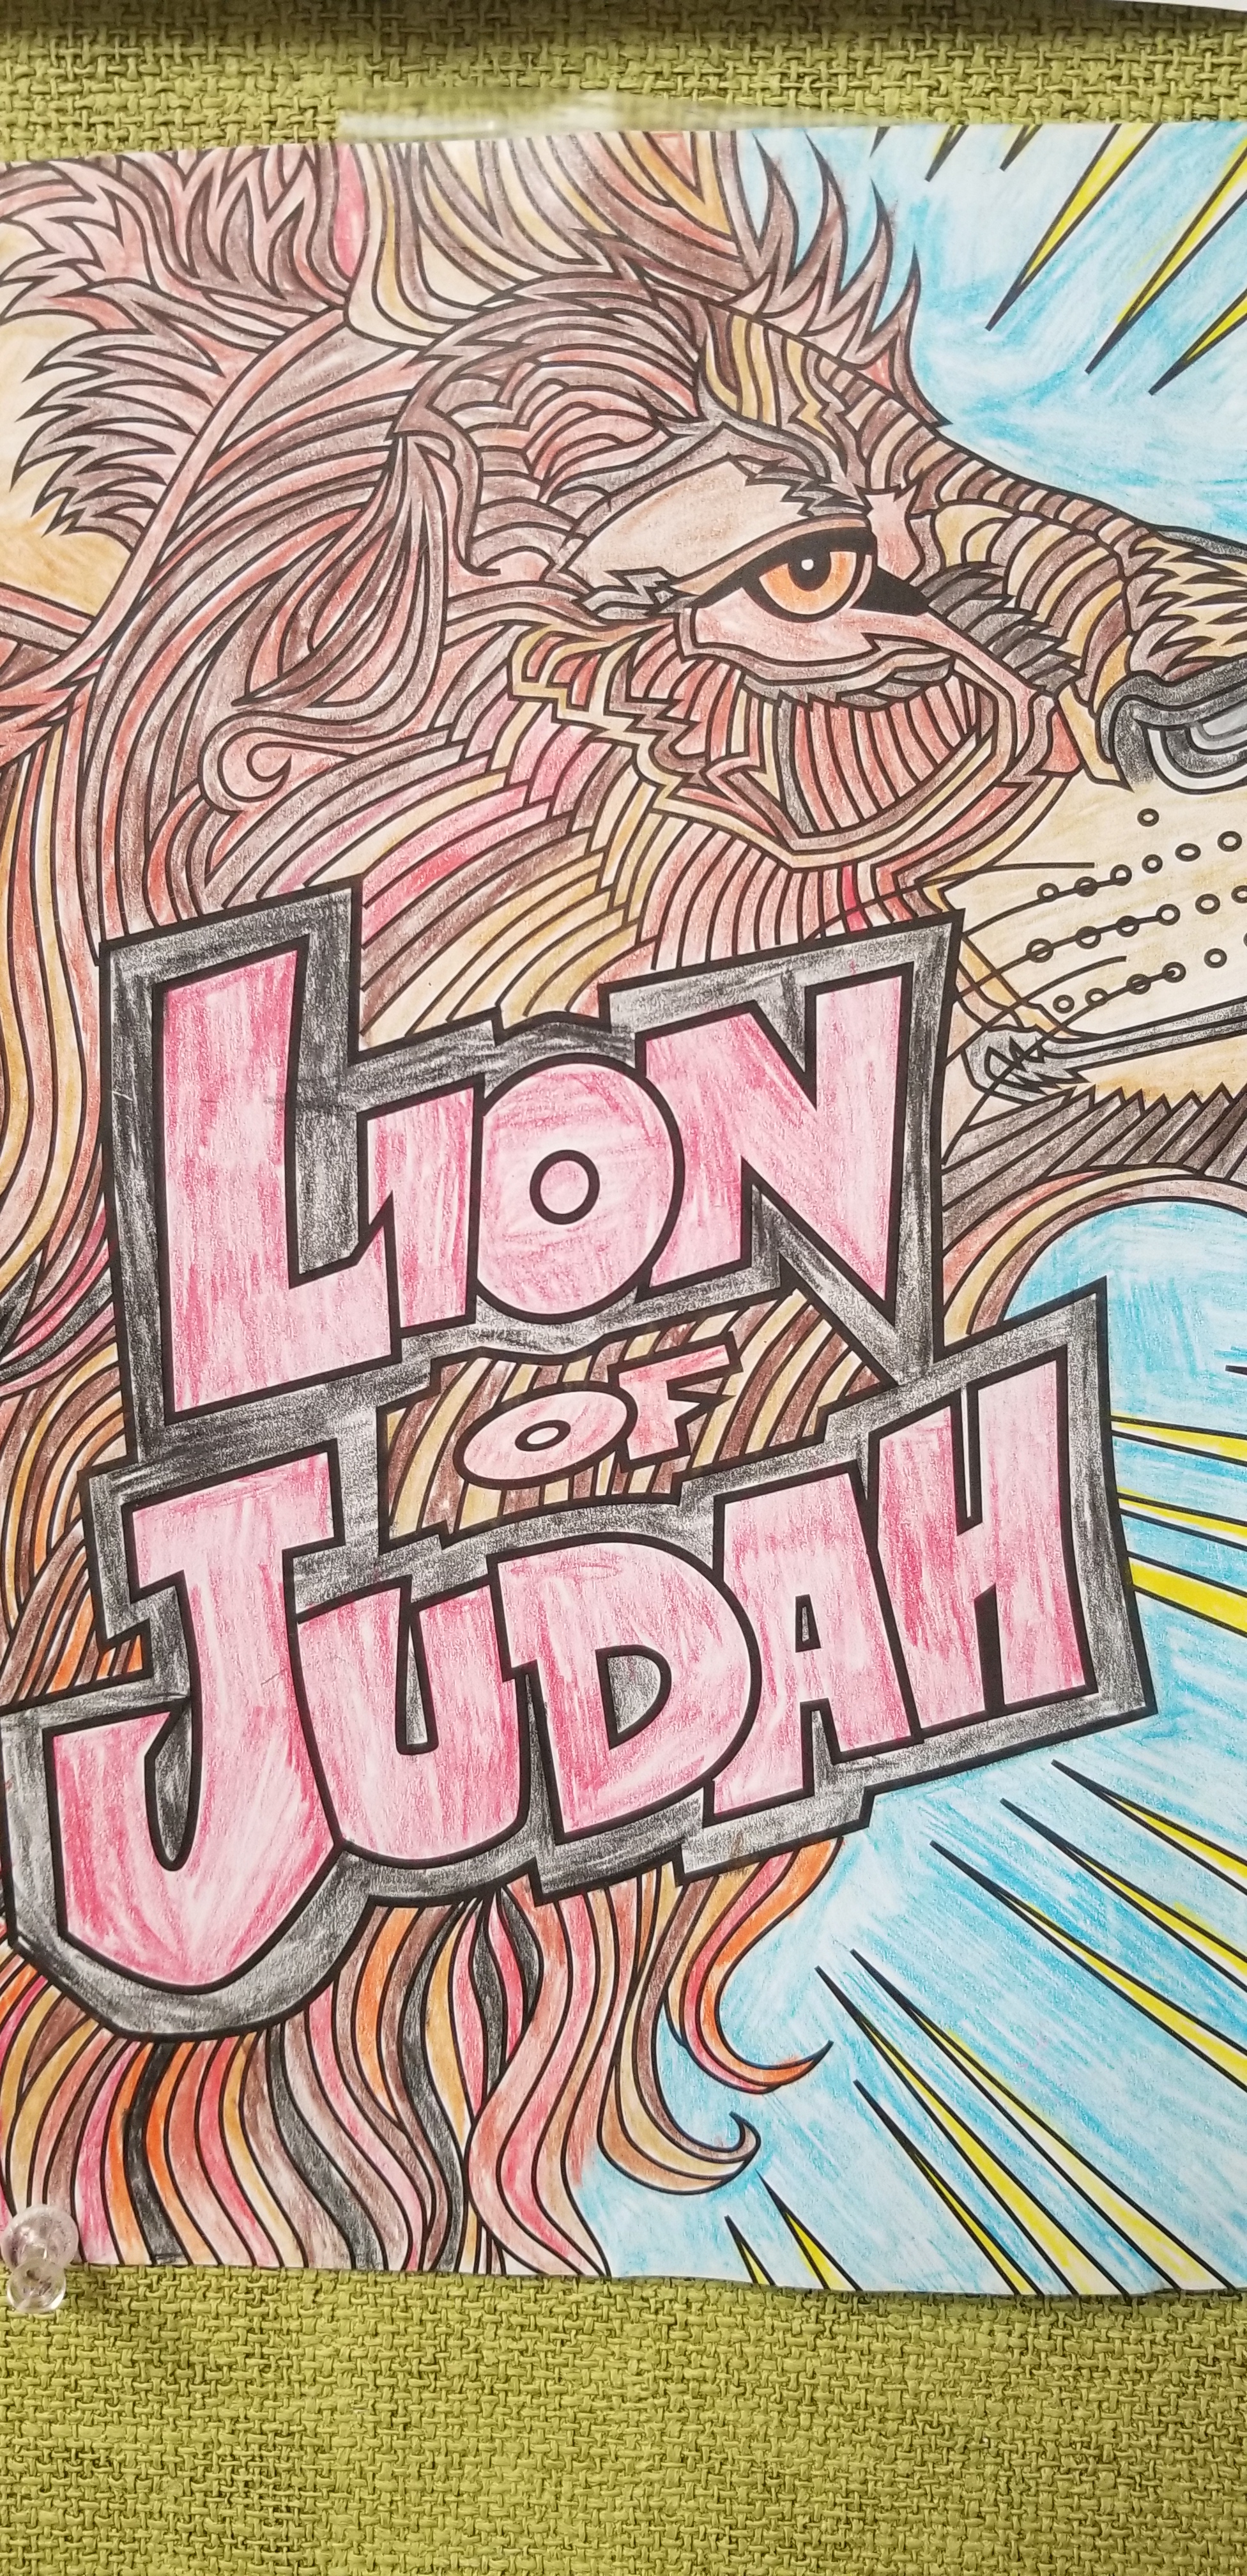 LION
OF
JUDAH